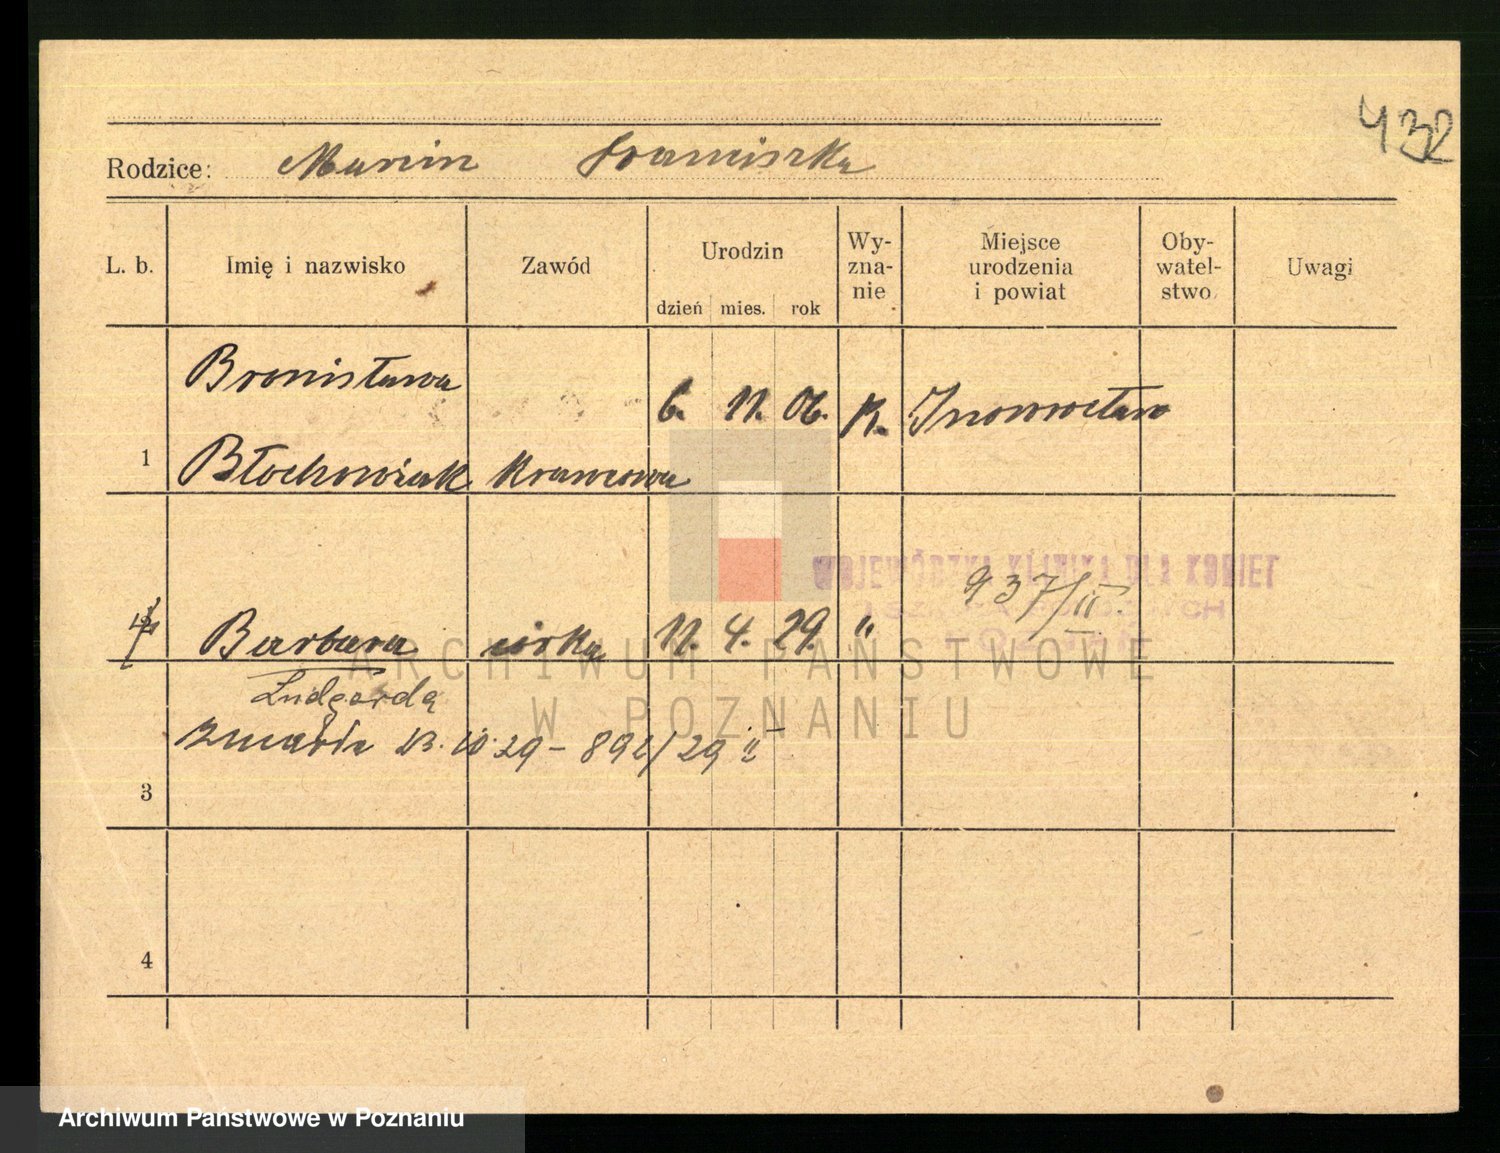 432
Rodzice: Marcin Franciszka
L. b. Imię i nazwisko Zawód Urodzin dzień mies. rok Wy-zna-nie Miejsce urodzenia i powiat Oby-watel-stwo Uwagi
Bronisława
6. 11. 06. K. Inowrocław
1 Błochowiak krawcowa
WOJEWÓDZKA KLINIKA DLA KOBIET
937/II.
Barbara córka 11. 4. 29. "
Ludgarda
zmarła 23. 10. 29 – 892/29 II
3
4
ARCHIWUM PAŃSTWOWE
W POZNANIU
Archiwum Państwowe w Poznaniu